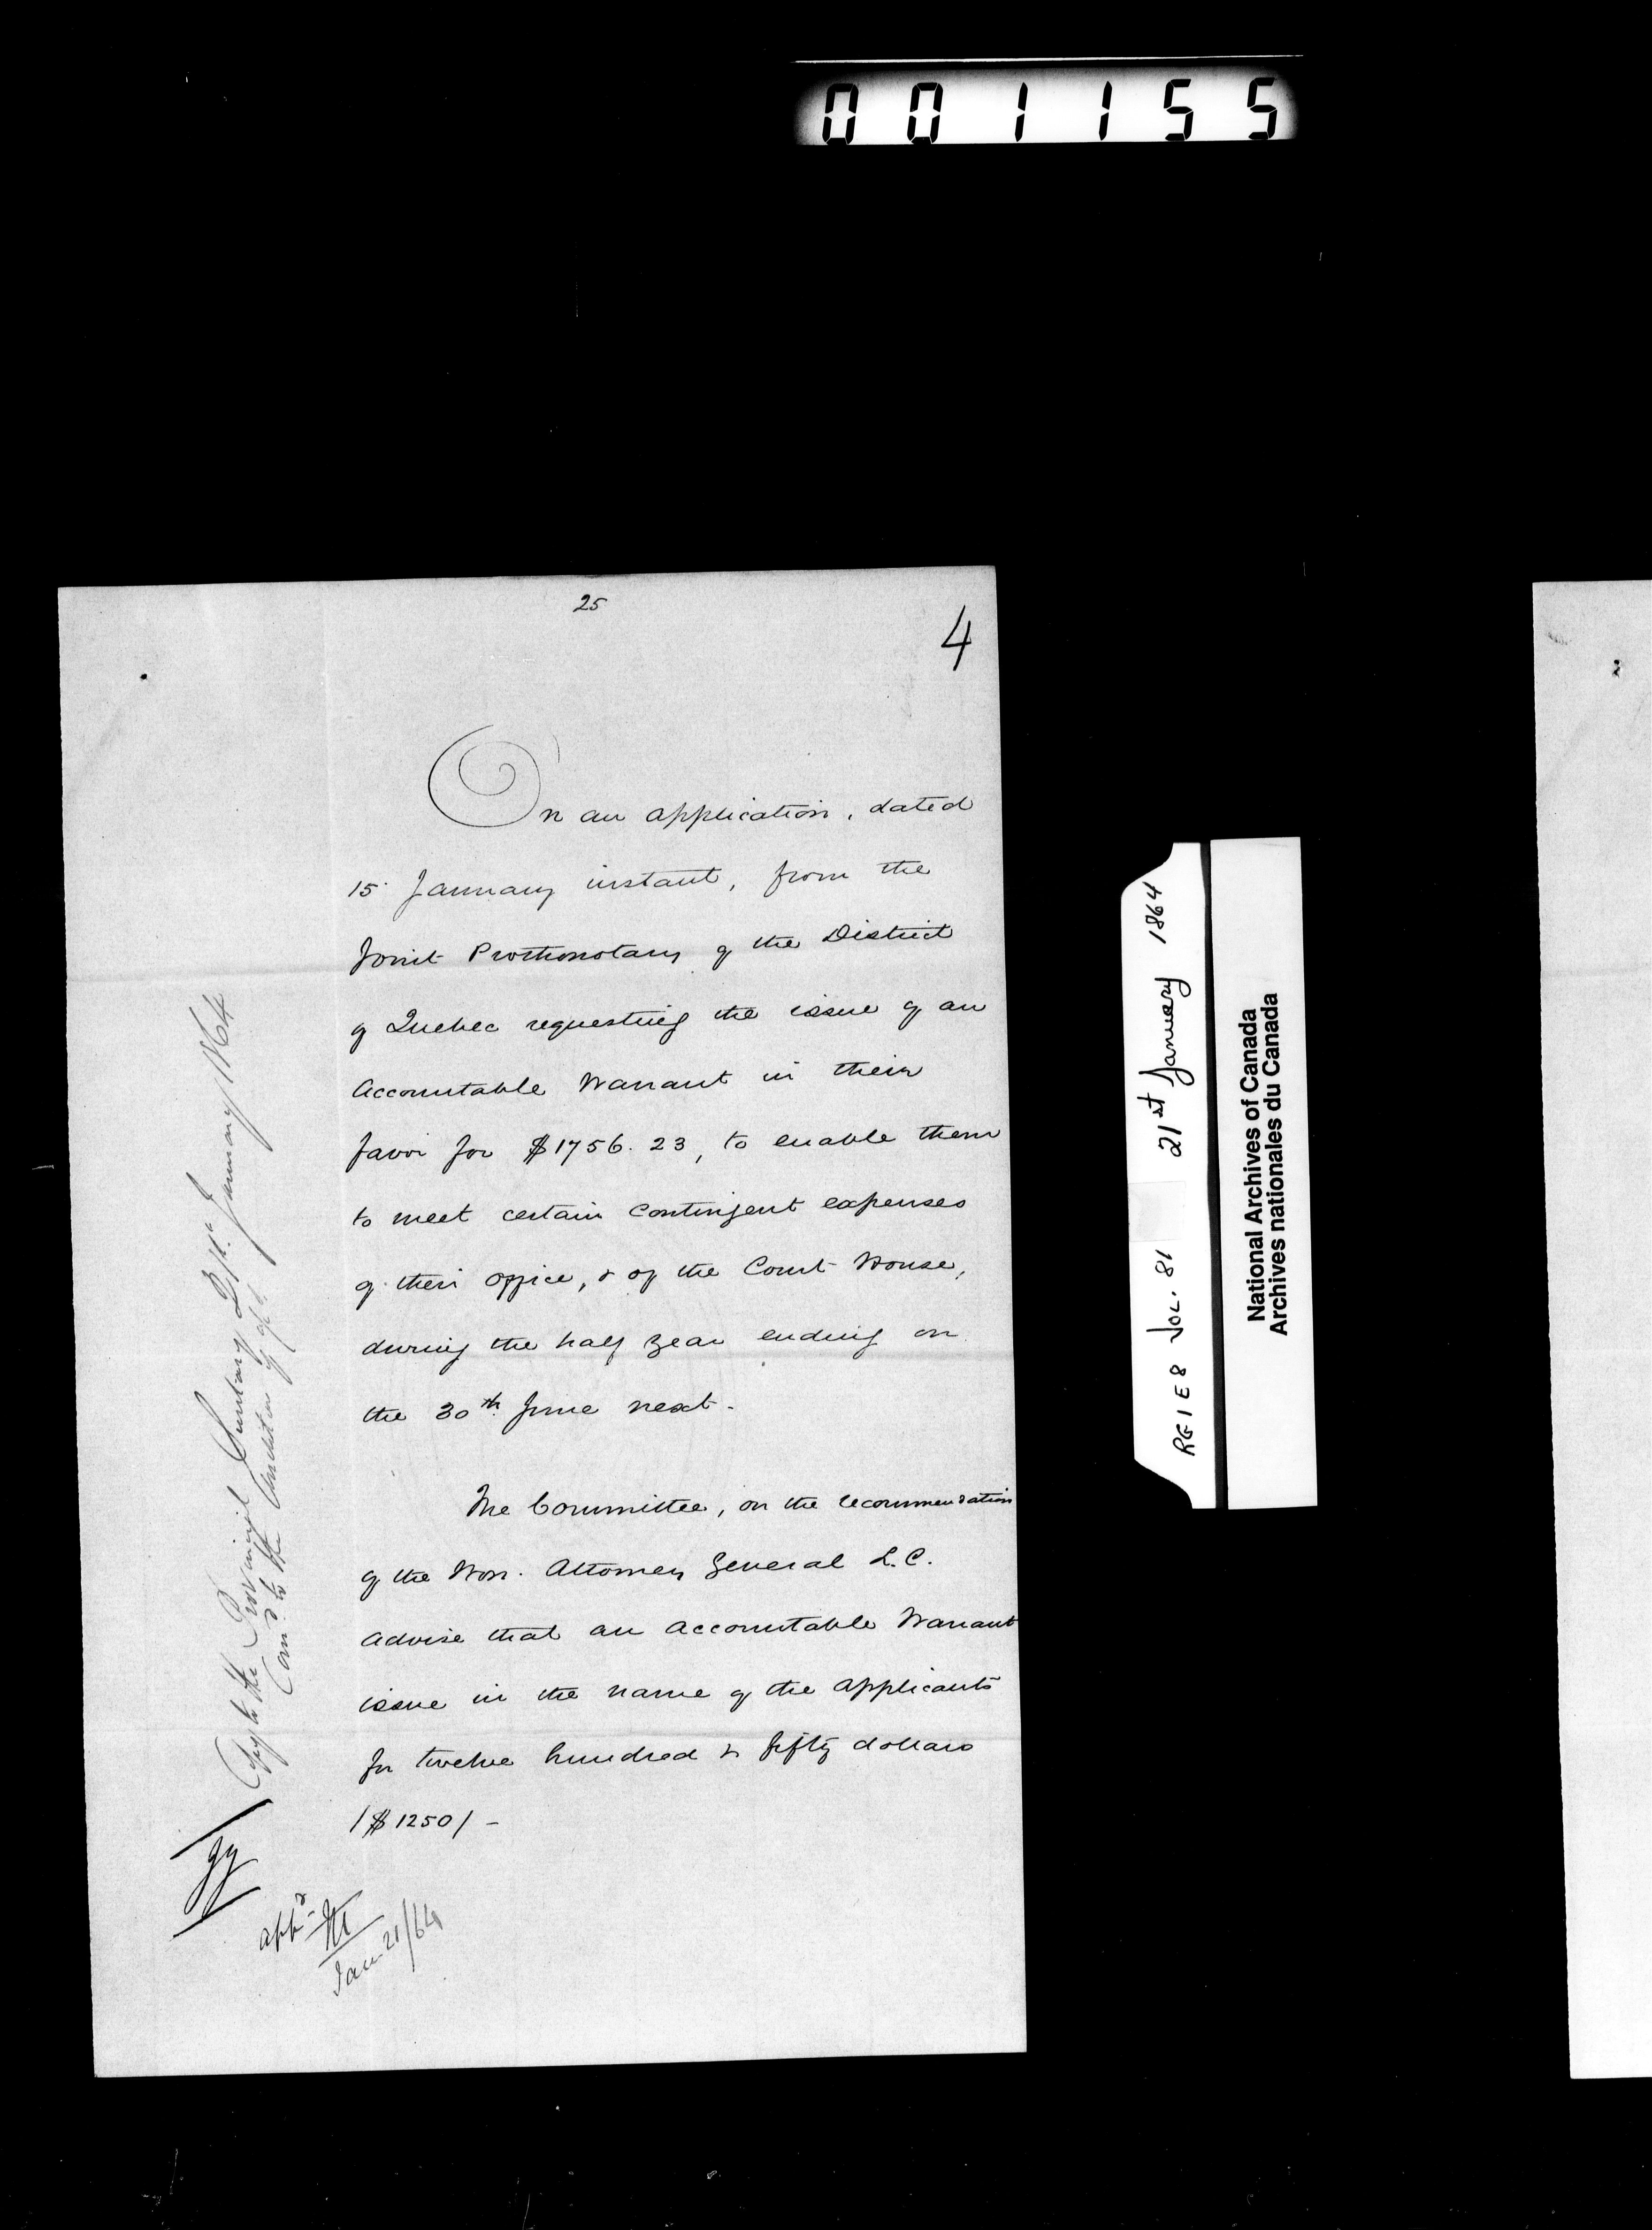 001155
25
4
On an application, dated
15 January instant, from the
Joint Prothonotary of the District
of Quebec requesting the issue of an
Accountable Warrant in their
favor for $1756.23, to enable them
to meet certain Contingent expenses
of their office, & of the Court House,
during the half year ending on
the 30th June next.
The Committee, on the recommendation
of the Hon. Attorney General L.C.
advise that an accountable Warrant
issue in the name of the applicants
for twelve hundred & fifty dollars
/$1250/ –
Copy to the Provincial Secretary Dept. January 1864
Com'd to the Auditor
appd
Jan 21/64
RG 1 E 8 VOL. 81 21st January 1864
National Archives of Canada
Archives nationales du Canada